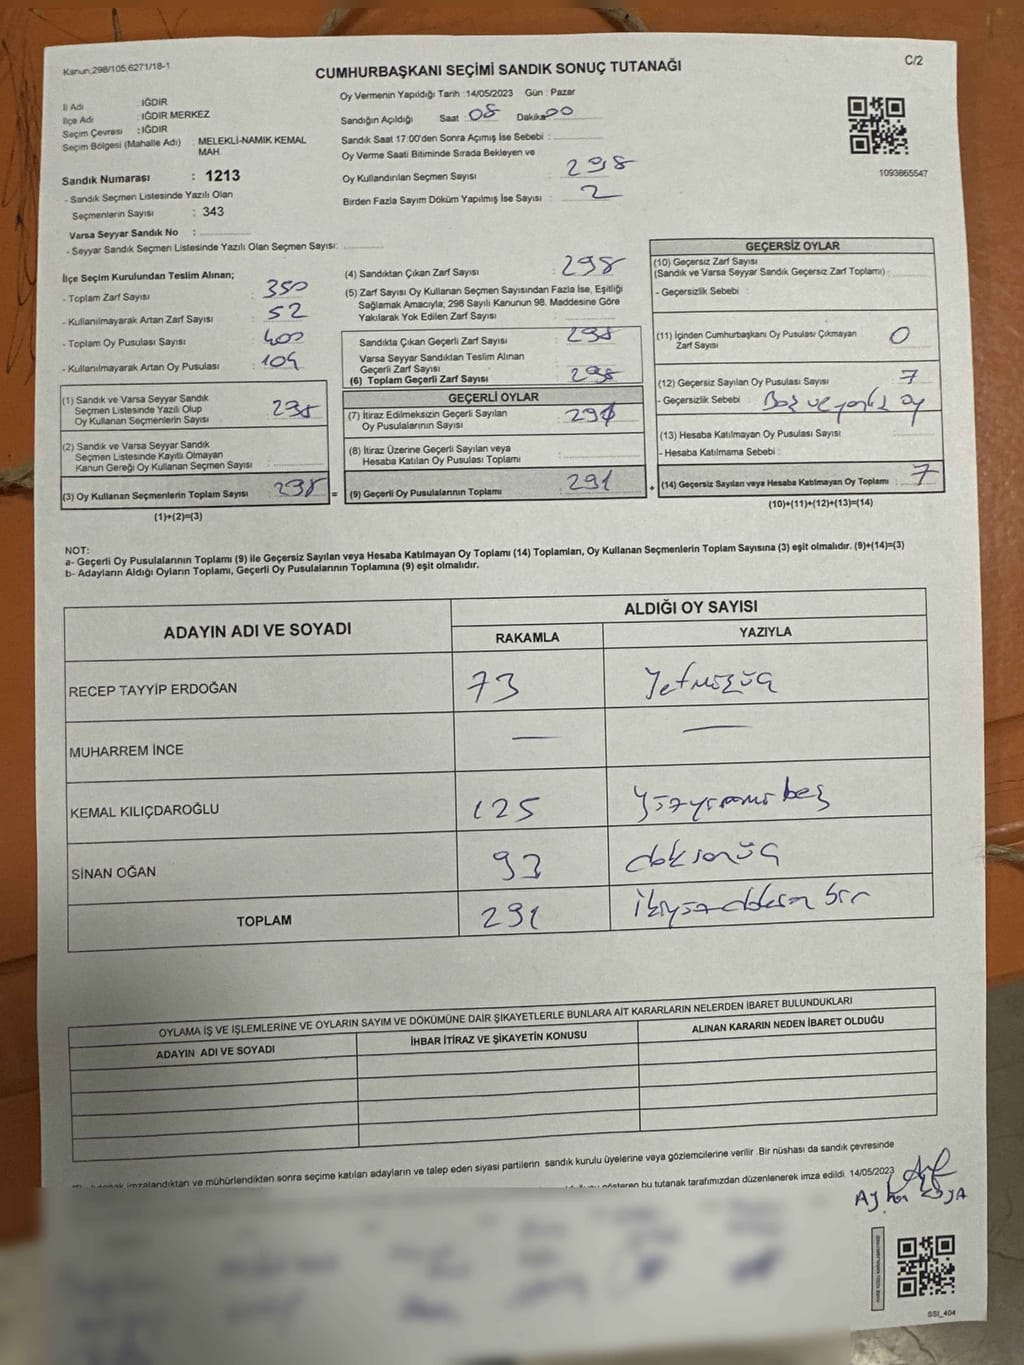 Kanun;298/105,6271/18-1
C/2
CUMHURBAŞKANI SEÇİMİ SANDIK SONUÇ TUTANAĞI
İl Adı : IĞDIR
İlçe Adı : IĞDIR MERKEZ
Seçim Çevresi : IĞDIR
Seçim Bölgesi (Mahalle Adı) : MELEKLİ-NAMIK KEMAL
MAH.
Sandık Numarası : 1213
- Sandık Seçmen Listesinde Yazılı Olan
Seçmenlerin Sayısı : 343
Varsa Seyyar Sandık No :
- Seyyar Sandık Seçmen Listesinde Yazılı Olan Seçmen Sayısı:
Oy Vermenin Yapıldığı Tarih :14/05/2023 Gün : Pazar
Sandığın Açıldığı Saat : 08 Dakika 00
Sandık Saat 17:00'den Sonra Açımış İse Sebebi :
Oy Verme Saati Bitiminde Sırada Bekleyen ve
Oy Kullandırılan Seçmen Sayısı : 298
Birden Fazla Sayım Döküm Yapılmış İse Sayısı : 2
1093865547
İlçe Seçim Kurulundan Teslim Alınan;
- Toplam Zarf Sayısı : 350
- Kullanılmayarak Artan Zarf Sayısı : 52
- Toplam Oy Pusulası Sayısı : 400
- Kullanılmayarak Artan Oy Pusulası : 104
(1) Sandık ve Varsa Seyyar Sandık
Seçmen Listesinde Yazılı Olup
Oy Kullanan Seçmenlerin Sayısı : 298
(2) Sandık ve Varsa Seyyar Sandık
Seçmen Listesinde Kayıtlı Olmayan
Kanun Gereği Oy Kullanan Seçmen Sayısı :
(3) Oy Kullanan Seçmenlerin Toplam Sayısı : 298 =
(1)+(2)=(3)
(4) Sandıktan Çıkan Zarf Sayısı : 298
(5) Zarf Sayısı Oy Kullanan Seçmen Sayısından Fazla İse, Eşitliği
Sağlamak Amacıyla; 298 Sayılı Kanunun 98. Maddesine Göre
Yakılarak Yok Edilen Zarf Sayısı :
Sandıkta Çıkan Geçerli Zarf Sayısı : 298
Varsa Seyyar Sandıktan Teslim Alınan
Geçerli Zarf Sayısı :
(6) Toplam Geçerli Zarf Sayısı : 298
GEÇERLİ OYLAR
(7) İtiraz Edilmeksizin Geçerli Sayılan
Oy Pusulalarının Sayısı : 291
(8) İtiraz Üzerine Geçerli Sayılan veya
Hesaba Katılan Oy Pusulası Toplamı :
(9) Geçerli Oy Pusulalarının Toplamı : 291 +
GEÇERSİZ OYLAR
(10) Geçersiz Zarf Sayısı
(Sandık ve Varsa Seyyar Sandık Geçersiz Zarf Toplamı) :
- Geçersizlik Sebebi :
(11) İçinden Cumhurbaşkanı Oy Pusulası Çıkmayan
Zarf Sayısı : 0
(12) Geçersiz Sayılan Oy Pusulası Sayısı : 7
- Geçersizlik Sebebi : Boş ve yanlış oy
(13) Hesaba Katılmayan Oy Pusulası Sayısı :
- Hesaba Katılmama Sebebi :
(14) Geçersiz Sayılan veya Hesaba Katılmayan Oy Toplamı : 7
(10)+(11)+(12)+(13)=(14)
NOT:
a- Geçerli Oy Pusulalarının Toplamı (9) ile Geçersiz Sayılan veya Hesaba Katılmayan Oy Toplamı (14) Toplamları, Oy Kullanan Seçmenlerin Toplam Sayısına (3) eşit olmalıdır. (9)+(14)=(3)
b- Adayların Aldığı Oyların Toplamı, Geçerli Oy Pusulalarının Toplamına (9) eşit olmalıdır.
ADAYIN ADI VE SOYADI
ALDIĞI OY SAYISI
RAKAMLA YAZIYLA
RECEP TAYYİP ERDOĞAN 73 Yetmişüç
MUHARREM İNCE — —
KEMAL KILIÇDAROĞLU 125 Yüzyirmi beş
SİNAN OĞAN 93 doksanüç
TOPLAM 291 ikiyüzdoksan bir
OYLAMA İŞ VE İŞLEMLERİNE VE OYLARIN SAYIM VE DÖKÜMÜNE DAİR ŞİKAYETLERLE BUNLARA AİT KARARLARIN NELERDEN İBARET BULUNDUKLARI
ADAYIN ADI VE SOYADI İHBAR İTİRAZ VE ŞİKAYETİN KONUSU ALINAN KARARIN NEDEN İBARET OLDUĞU
tutanak imzalandıktan ve mühürlendikten sonra seçime katılan adayların ve talep eden siyasi partilerin sandık kurulu üyelerine veya gözlemcilerine verilir .Bir nüshası da sandık çevresinde
gösteren bu tutanak tarafımızdan düzenlenerek imza edildi. 14/05/2023
SSI_404